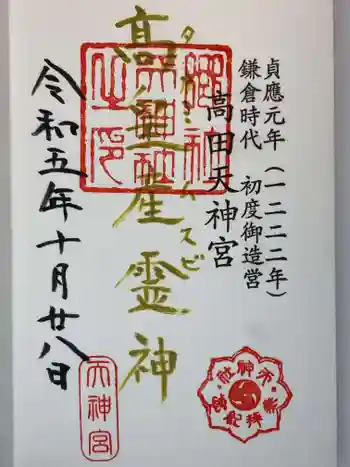 貞應元年（一二二二年）
鎌倉時代 初度御造営
高田天神宮
高皇産霊神
タカミムスビ
令和五年十月廿八日
天神宮